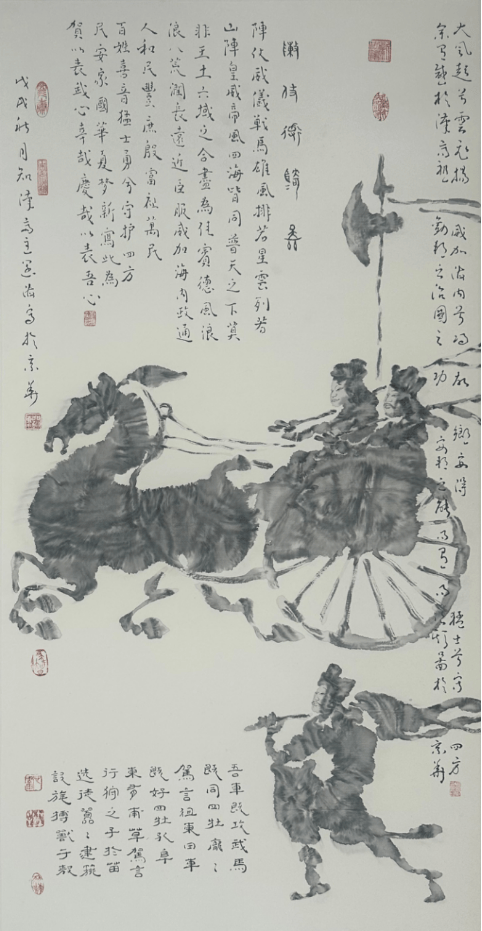 大風起兮雲飛揚 威加海内兮歸故鄉 安得猛士兮守四方
於漢高祖 治國之功 於京華
陣仗威儀戰馬雄風排若星雲列若
山陣皇威帝風四海皆同普天之下莫
非王土六域之合盡為佳賓德風浪
浪八荒澜長遠近臣服威加海内政通
人和民豐庶殷富秋萬民
百姓喜音猛士勇兮守護四方
民安泰國華夏梦新寫此為
賀以表我心幸哉慶哉以表吾心
戊戌秋月於京華
吾車既攻我馬
既同四牡龐々
駕言徂東田車
既好四牡孔阜
東有甫草駕言
行狩之子於苗
選徒囂々建旐
設旄搏獸于敖